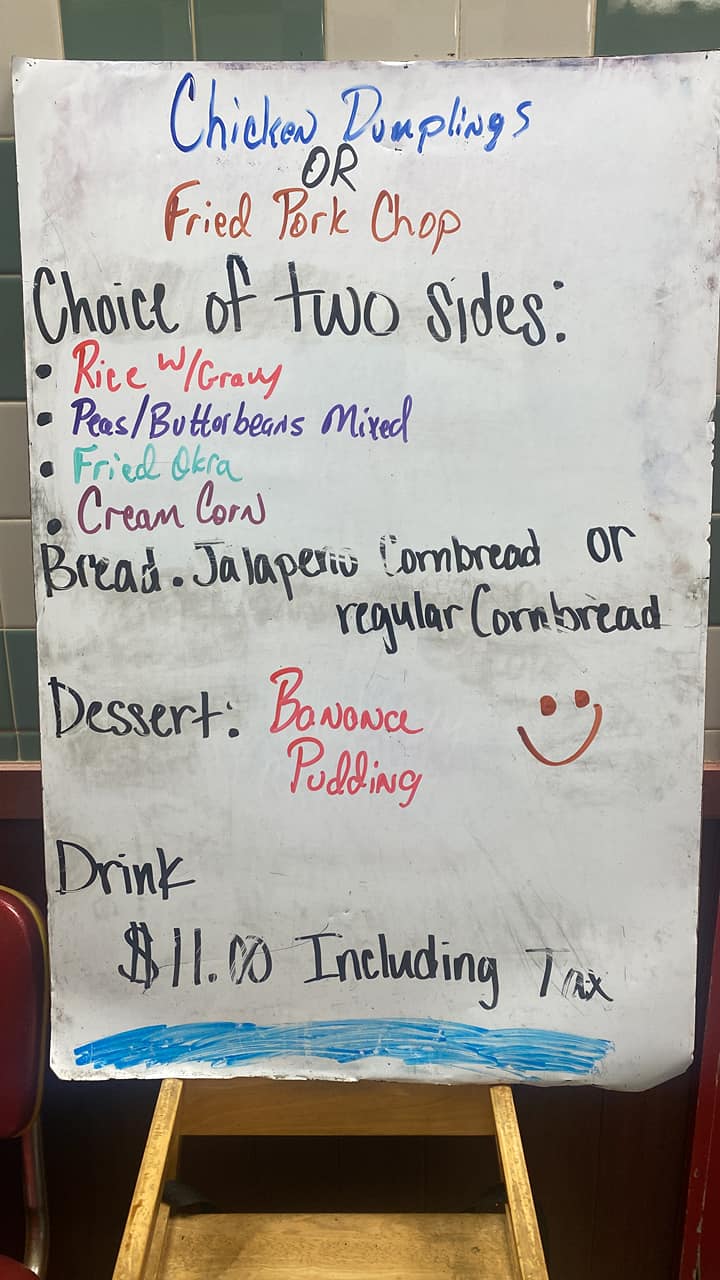 Chicken Dumplings
OR
Fried Pork Chop
Choice of two sides:
• Rice W/Gravy
• Peas/Butterbeans Mixed
• Fried Okra
• Cream Corn
Bread. Jalapeno Cornbread or
regular Cornbread
Dessert: Banana
Pudding
Drink
$11.00 Including Tax